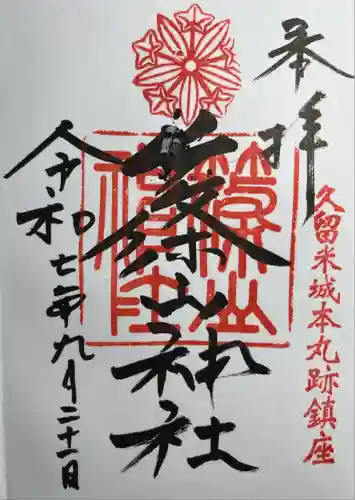 奉拝
久留米城本丸跡鎮座
篠山神社
篠山
神社
令和七年九月二十一日